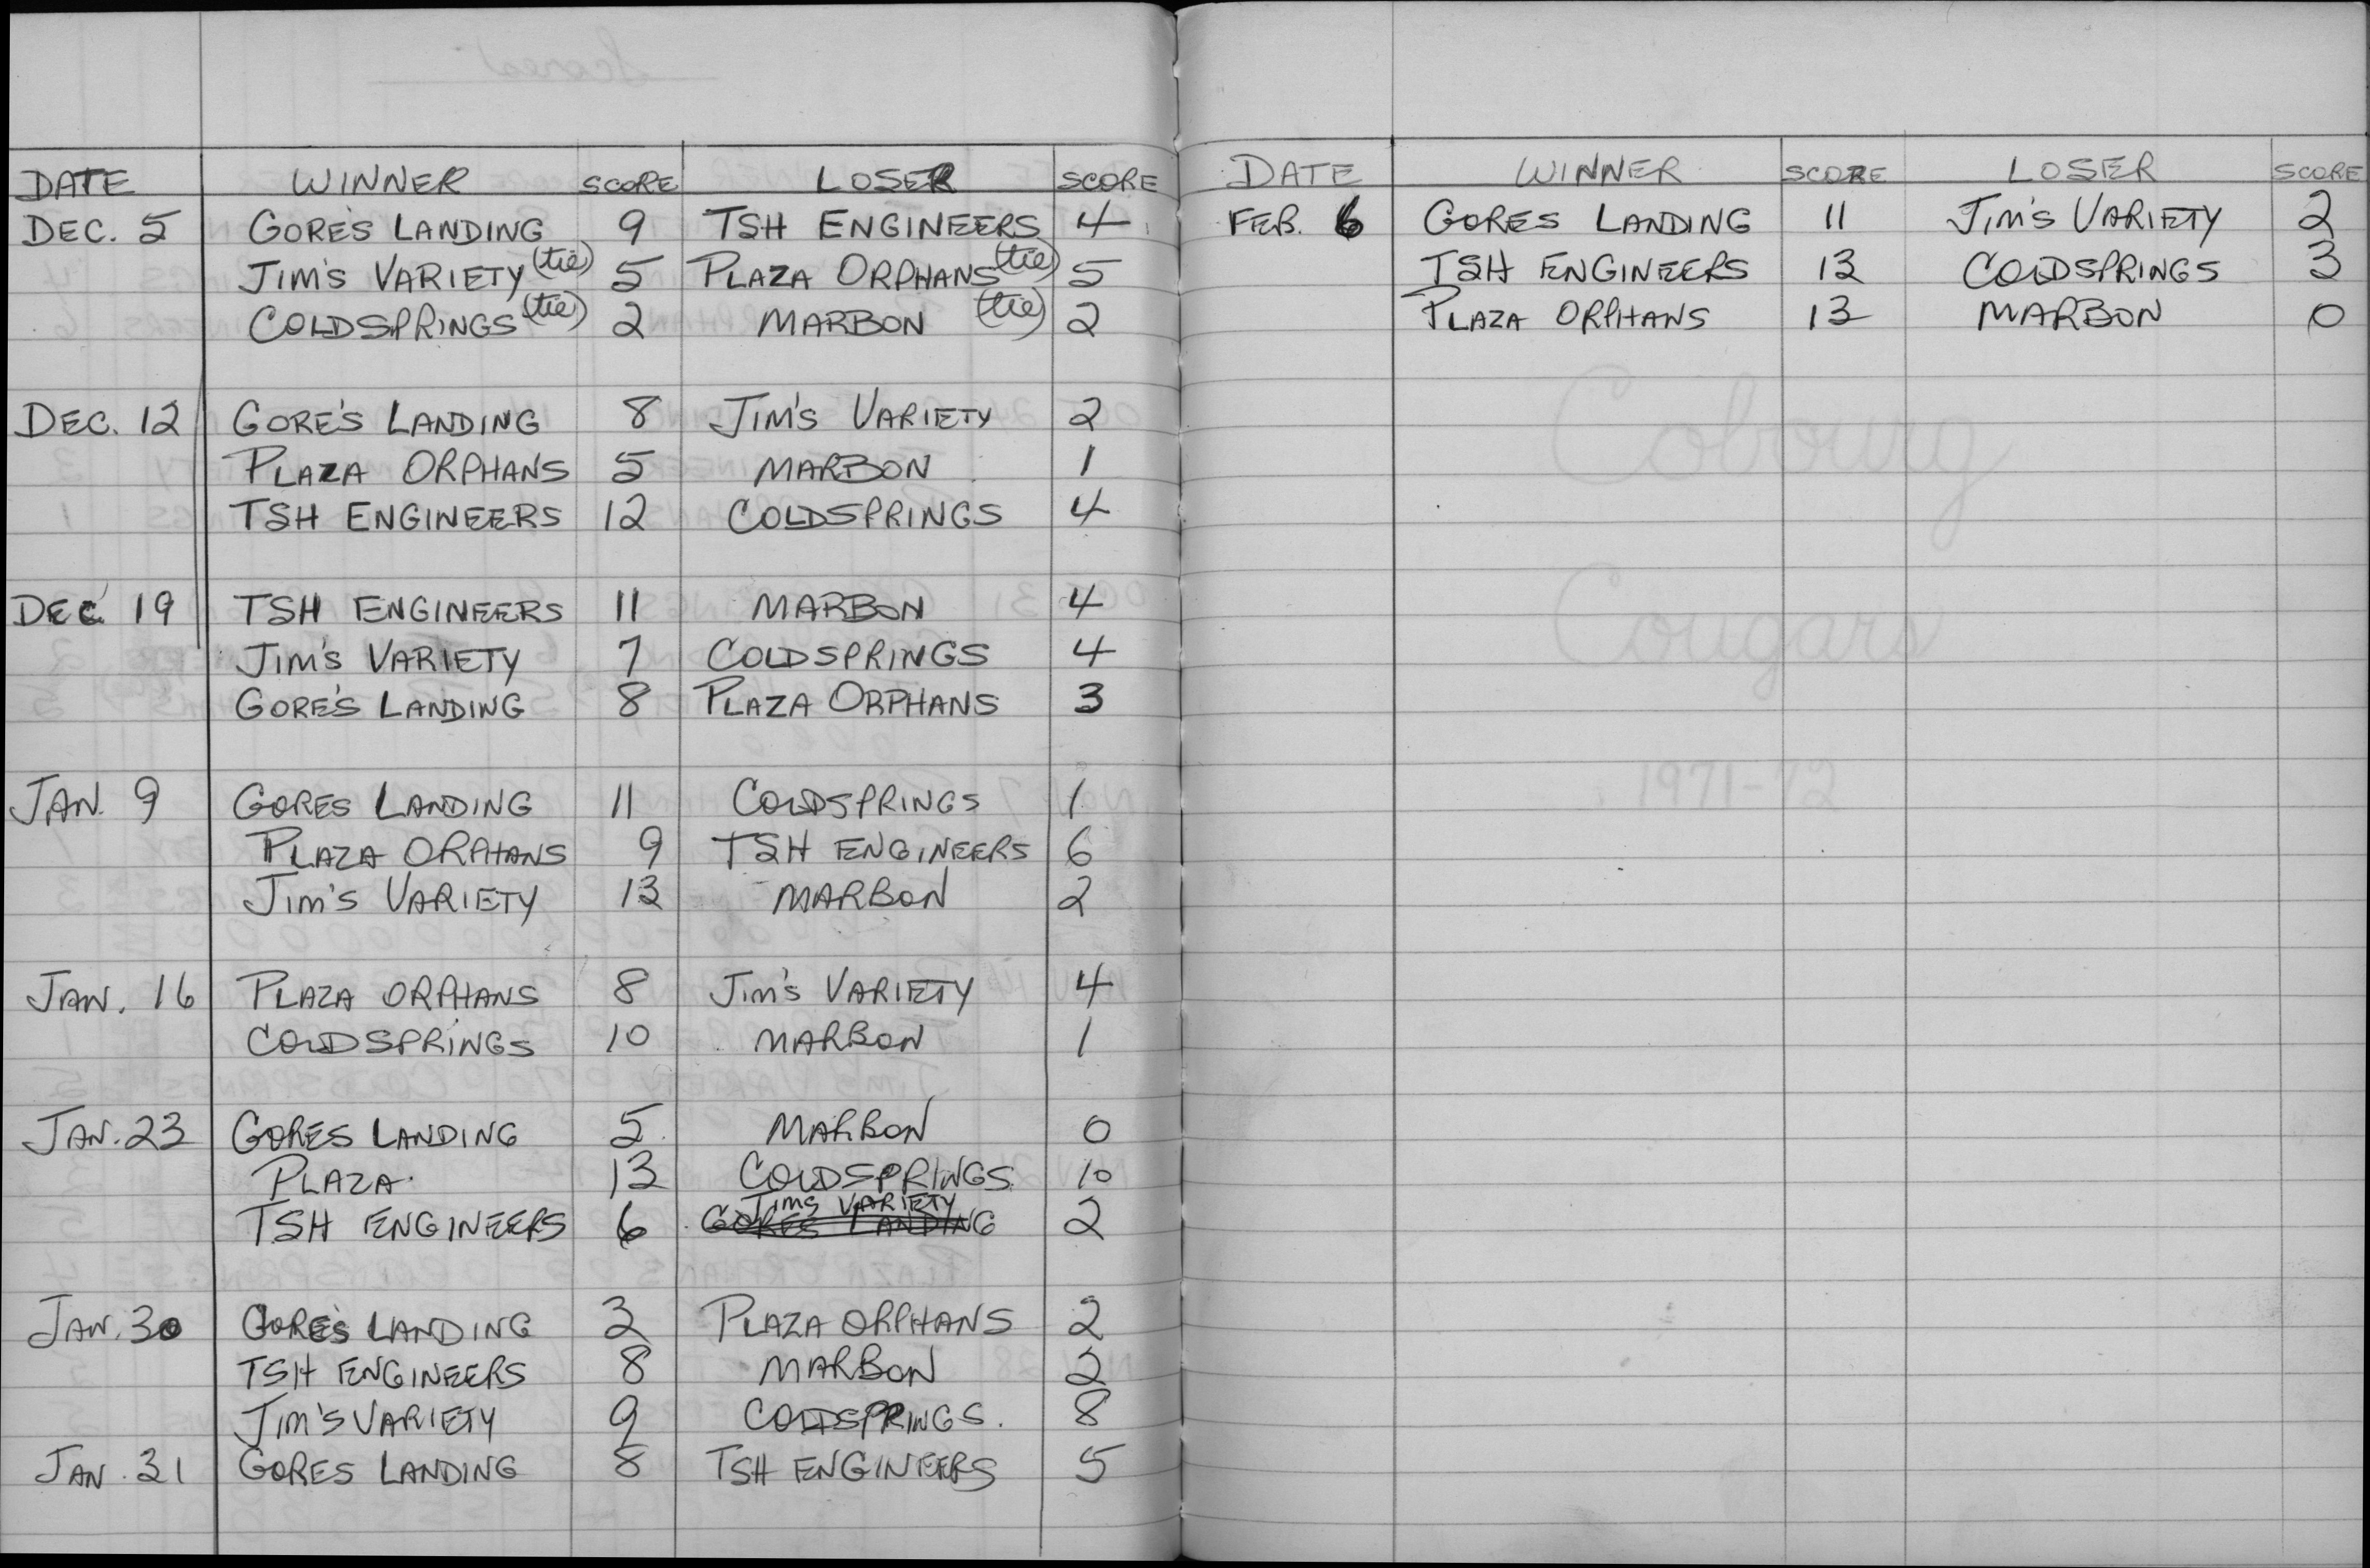 DATE WINNER SCORE LOSER SCORE
DEC. 5 GORE'S LANDING 9 TSH ENGINEERS 4
JIM'S VARIETY (tie) 5 PLAZA ORPHANS (tie) 5
COLDSPRINGS (tie) 2 MARBON (tie) 2
DEC. 12 GORE'S LANDING 8 JIM'S VARIETY 2
PLAZA ORPHANS 5 MARBON 1
TSH ENGINEERS 12 COLDSPRINGS 4
DEC. 19 TSH ENGINEERS 11 MARBON 4
JIM'S VARIETY 7 COLDSPRINGS 4
GORE'S LANDING 8 PLAZA ORPHANS 3
JAN. 9 GORES LANDING 11 COLDSPRINGS 1
PLAZA ORPHANS 9 TSH ENGINEERS 6
JIM'S VARIETY 13 MARBON 2
JAN. 16 PLAZA ORPHANS 8 JIM'S VARIETY 4
COLDSPRINGS 10 MARBON 1
JAN. 23 GORES LANDING 5 MARBON 0
PLAZA 13 COLDSPRINGS 10
TSH ENGINEERS 6 JIMS VARIETY GORES LANDING 2
JAN. 30 GORE'S LANDING 3 PLAZA ORPHANS 2
TSH ENGINEERS 8 MARBON 2
JIM'S VARIETY 9 COLDSPRINGS. 8
JAN. 31 GORES LANDING 8 TSH ENGINEERS 5
DATE WINNER SCORE LOSER SCORE
FEB. 6 GORES LANDING 11 JIM'S VARIETY 2
TSH ENGINEERS 13 COLDSPRINGS 3
PLAZA ORPHANS 13 MARBON 0
Cobourg
Cougars
1971-72